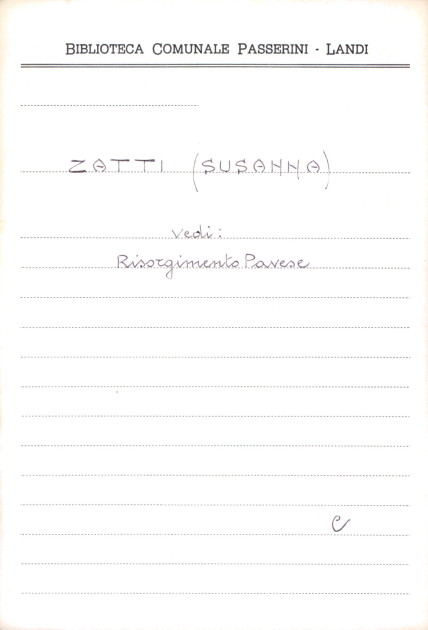 BIBLIOTECA COMUNALE PASSERINI - LANDI
ZATTI (SUSANNA)
vedi:
Risorgimento Pavese
C